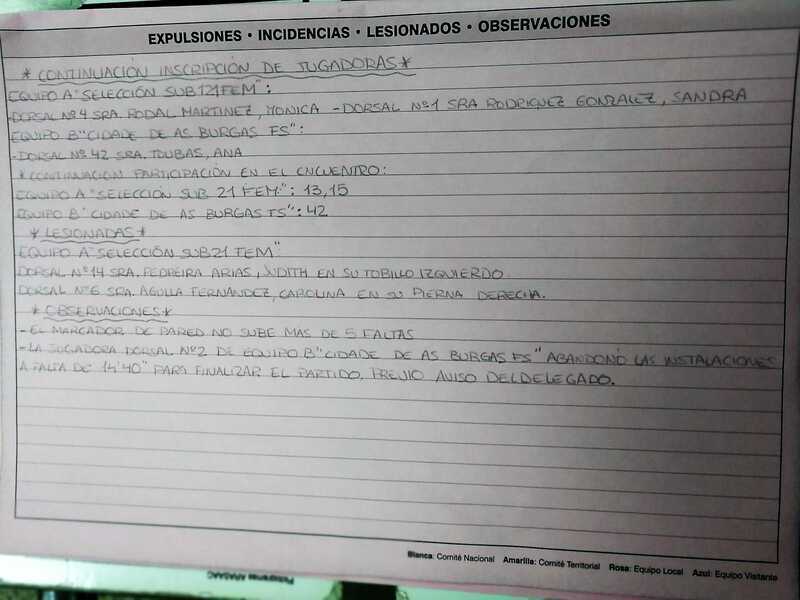 EXPULSIONES • INCIDENCIAS • LESIONADOS • OBSERVACIONES
* CONTINUACIÓN INSCRIPCIÓN DE JUGADORAS *
EQUIPO A "SELECCIÓN SUB 21 FEM":
-DORSAL Nº 4 SRA. RODAL MARTINEZ, MONICA - DORSAL Nº 1 SRA RODRIGUEZ GONZALEZ, SANDRA
EQUIPO B "CIDADE DE AS BURGAS FS":
-DORSAL Nº 42 SRA. TOUBAS, ANA
* CONTINUACION PARTICIPACIÓN EN EL ENCUENTRO:
EQUIPO A "SELECCIÓN SUB 21 FEM.": 13,15
EQUIPO B "CIDADE DE AS BURGAS FS": 42
* LESIONADAS *
EQUIPO A "SELECCIÓN SUB21 FEM"
DORSAL Nº 14 SRA. PEDREIRA ARIAS, JUDITH EN SU TOBILLO IZQUIERDO
DORSAL Nº 6 SRA. AGULLA FERNANDEZ, CAROLINA EN SU PIERNA DERECHA.
* OBSERVACIONES *
- EL MARCADOR DE PARED NO SUBE MAS DE 5 FALTAS
- LA JUGADORA DORSAL Nº 2 DE EQUIPO B "CIDADE DE AS BURGAS FS" ABANDONÓ LAS INSTALACIONES
A FALTA DE 14'40" PARA FINALIZAR EL PARTIDO. PREVIO AVISO DEL DELEGADO.
Blanca: Comité Nacional Amarilla: Comité Territorial Rosa: Equipo Local Azul: Equipo Visitante